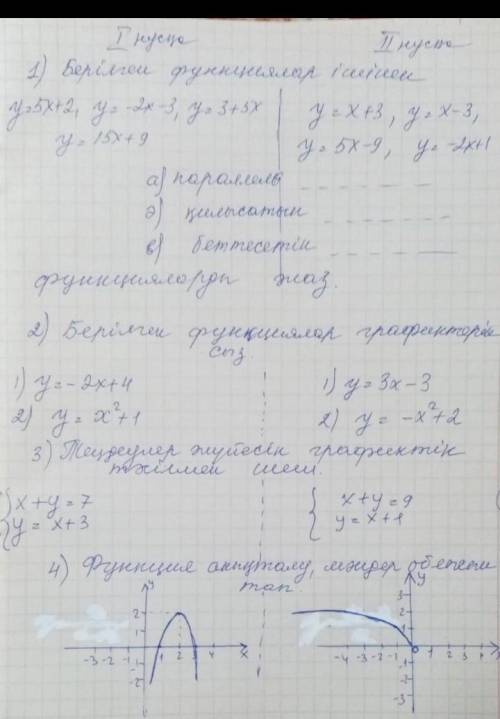 I нусқа II нусқа
1) Берілген функциялар ішінен
y=5x+2, y=-2x-3, y=3+5x y=x+3, y=x-3,
y=15x+9 y=5x-9, y=-2x+1
а) параллель
ә) қиылысатын
в) беттесетін
функцияларды жаз.
2) Берілген функциялар графиктерін
сыз.
1) y=-2x+4 1) y=3x-3
2) y=x²+1 2) y=-x²+2
3) Теңдеулер жүйесін графиктік
тәсілмен шеш.
{x+y=7 {x+y=9
{y=x+3 {y=x+1
4) Функция анықталу, мәндер
тап.
y y
2 3 2 1
-3 -2 -1 1 2 3 x -4 -3 -2 -1 1 2 3 4
-1
-2 -3